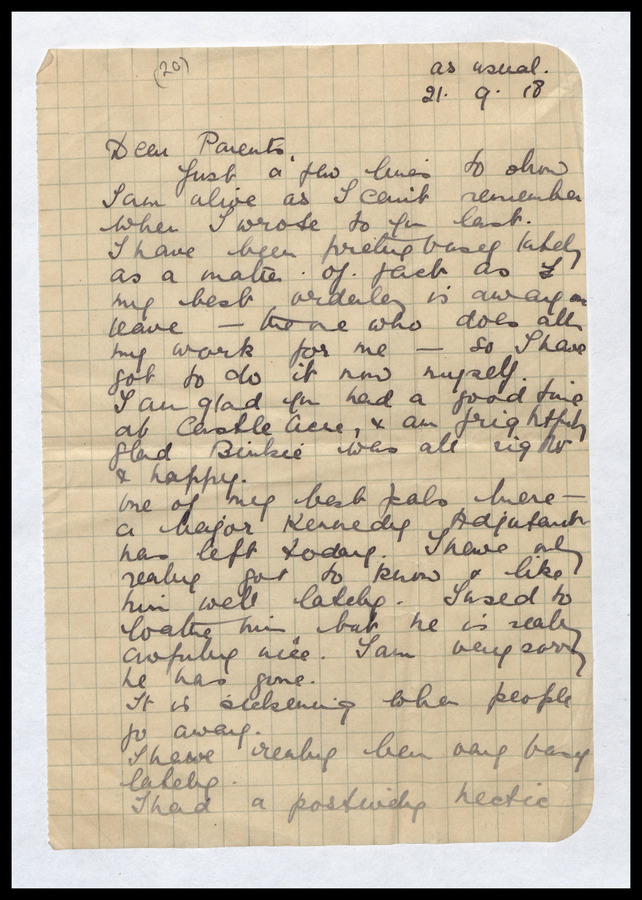 (20)
as usual.
21. 9. 18
Dear Parents,
Just a few lines to show
I am alive as I can't remember
when I wrote to you last.
I have been pretty busy lately
as a matter of fact as
my best orderley is away on
leave — the one who does all
my work for me — so I have
got to do it now myself.
I am glad you had a good time
at Castle Acre, & am frightfully
glad Binkie was all right
& happy.
one of my best pals here —
a Major Kennedy Adjutant
has left today. I have only
really got to know & like
him well lately. I used to
loathe him but he is really
awfully nice. I am very sorry
he has gone.
It is sickening when people
go away.
I have really been very busy
lately.
I had a positively hectic